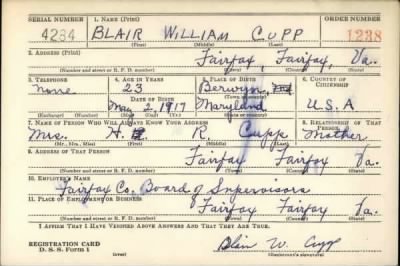 SERIAL NUMBER 1. NAME (Print) ORDER NUMBER
4234 BLAIR WILLIAM CUPP 1238
(First) (Middle) (Last)
2. ADDRESS (Print)
Fairfax, Fairfax, Va.
(Number and street or R. F. D. number) (Town) (County) (State)
3. TELEPHONE 4. AGE IN YEARS 5. PLACE OF BIRTH 6. COUNTRY OF CITIZENSHIP
None 23 Berwyn,
DATE OF BIRTH (Town or county)
May 2, 1917 Maryland U.S.A
(Exchange) (Number) (Mo.) (Day) (Yr.) (State or country)
7. NAME OF PERSON WHO WILL ALWAYS KNOW YOUR ADDRESS 8. RELATIONSHIP OF THAT PERSON
Mrs. H. R. Cupp Mother
(Mr., Mrs., Miss) (First) (Middle) (Last)
9. ADDRESS OF THAT PERSON
Fairfax Fairfax Va.
(Number and street or R. F. D. number) (Town) (County) (State)
10. EMPLOYER'S NAME
Fairfax Co. Board of Supervisors
11. PLACE OF EMPLOYMENT OR BUSINESS
Fairfax Fairfax Va.
(Number and street or R. F. D. number) (Town) (County) (State)
I AFFIRM THAT I HAVE VERIFIED ABOVE ANSWERS AND THAT THEY ARE TRUE.
REGISTRATION CARD
D. S. S. Form 1 (over) Blair W. Cupp
(Signature)